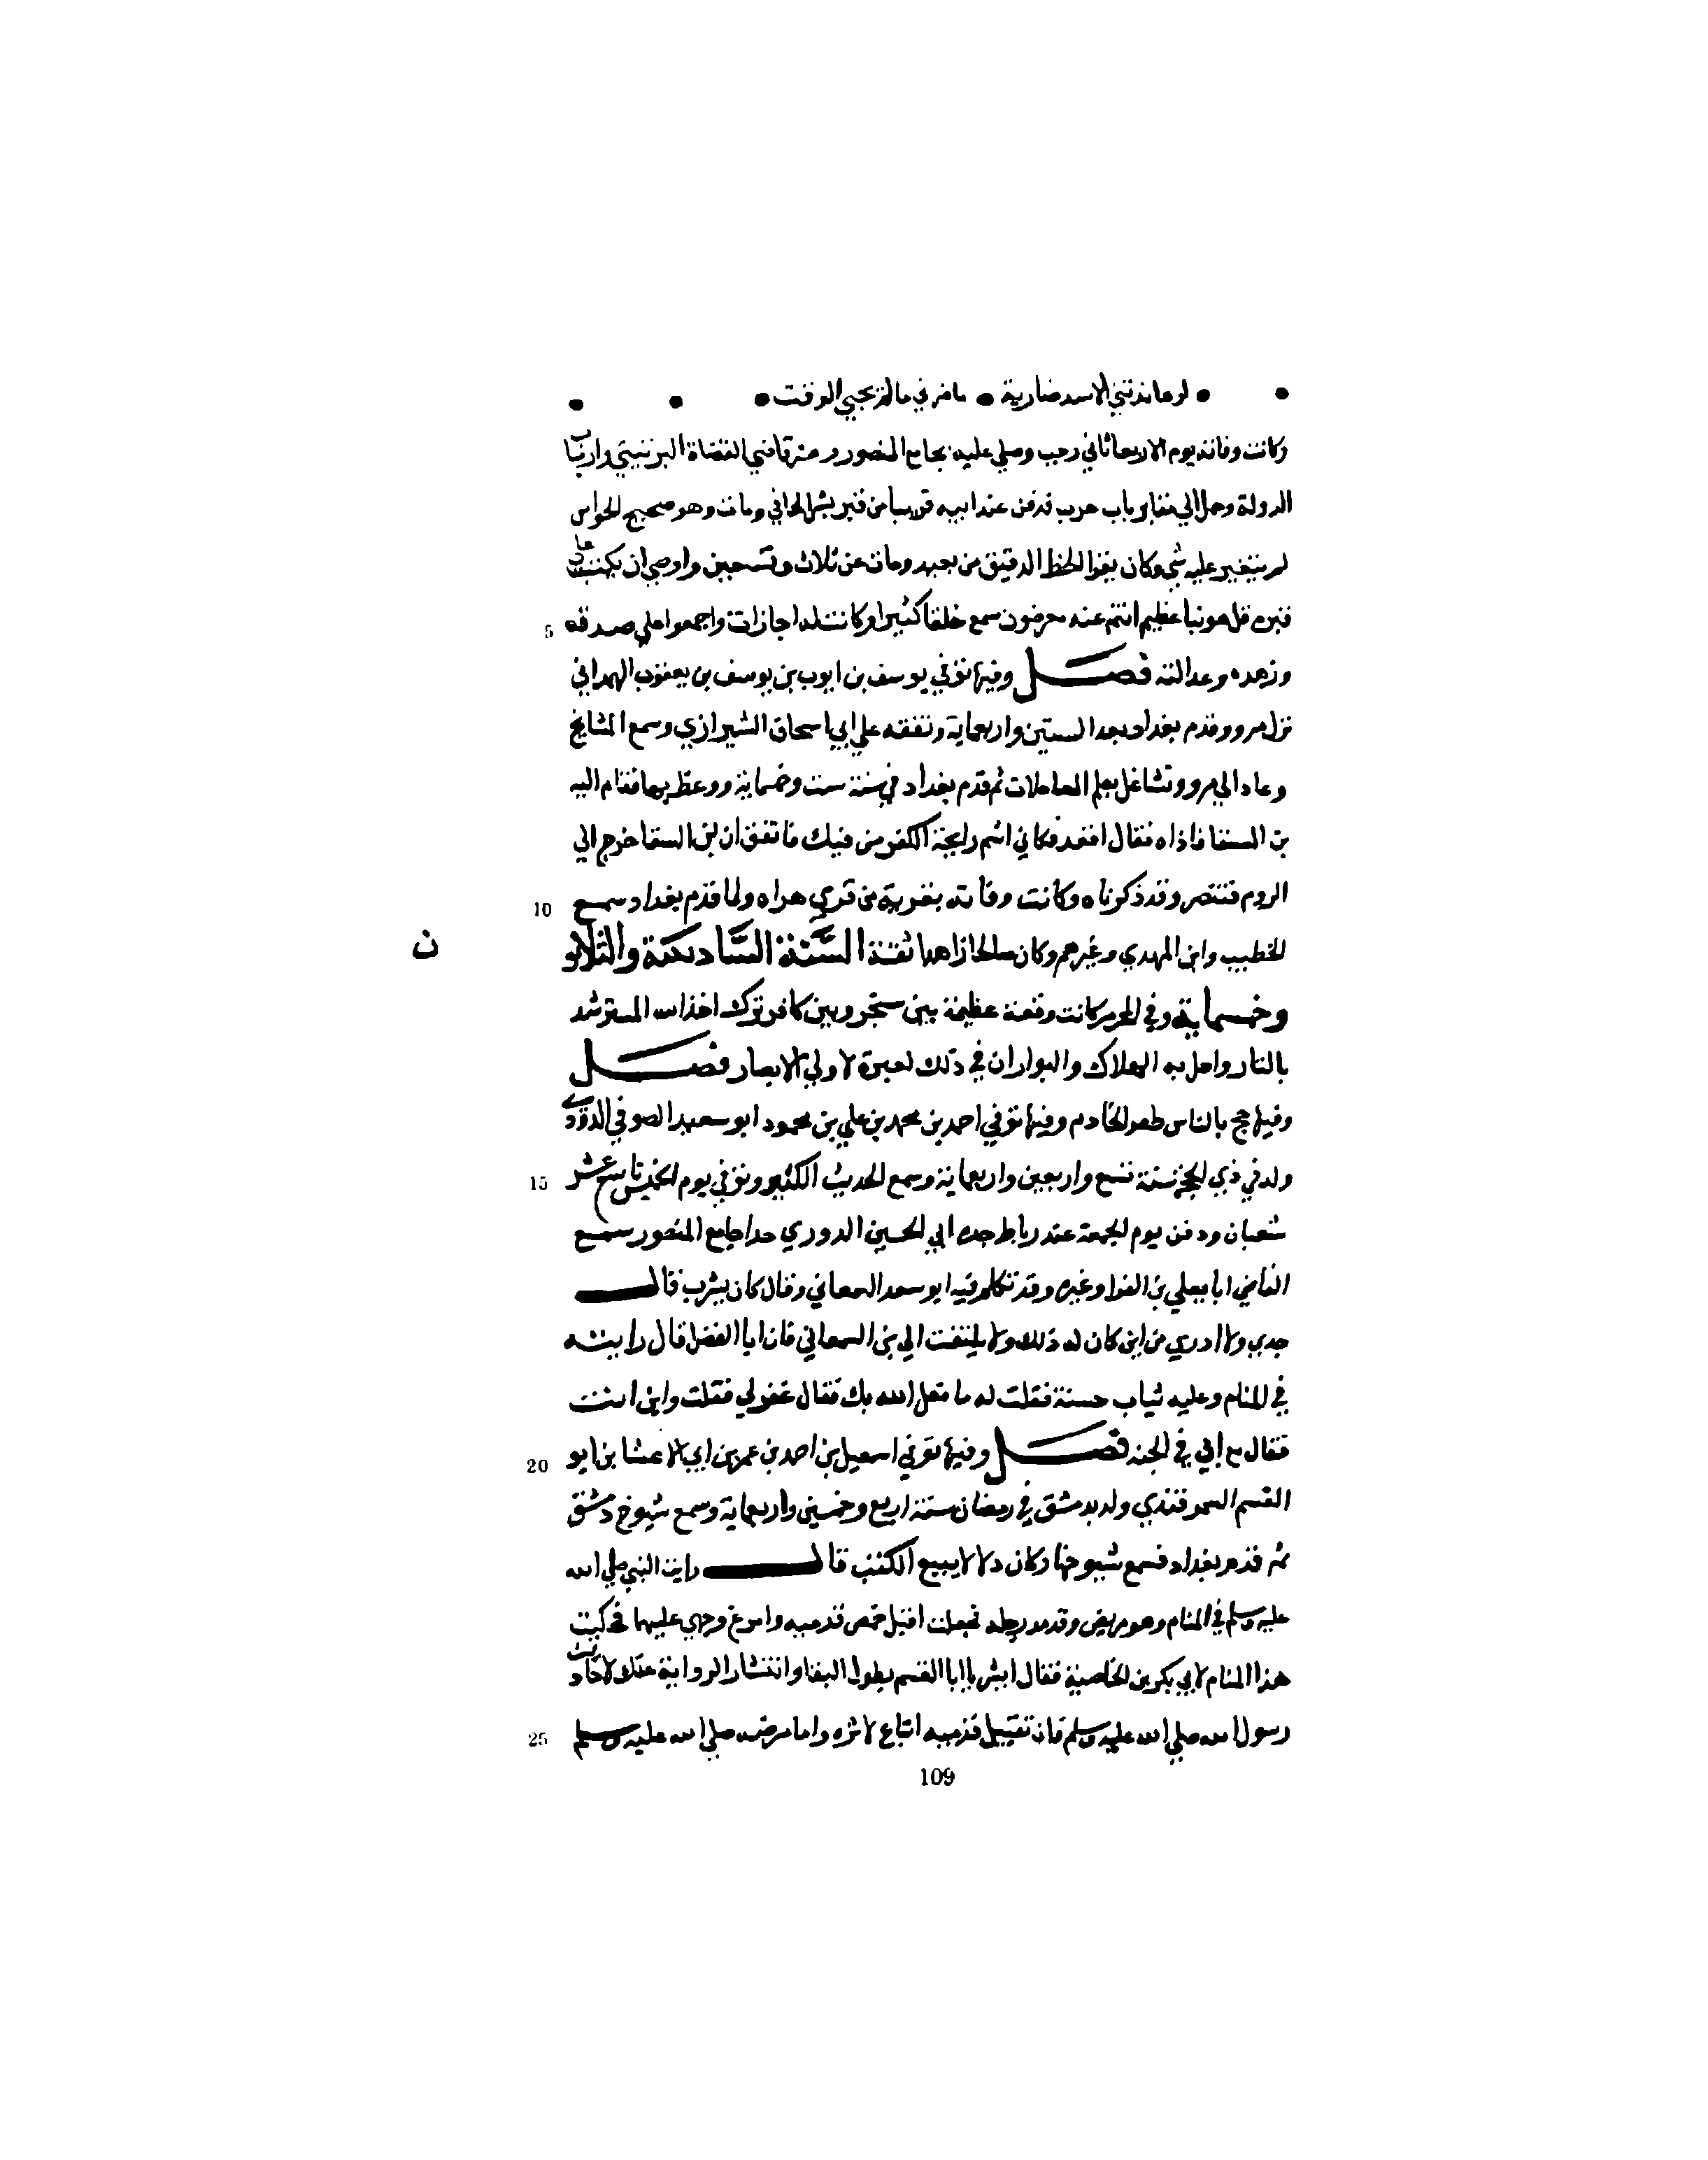 لو عاندتني الاسد ضارية • ما ضرني مالم يجي الوقت
وكانت وفاته يوم الاربعا ثاني رجب وصلي عليه بجامع المنصور وحضر قاضي القضاة الزينبي وارباب
الدولة وحمل الي مقابر باب حرب فدفن عند ابيه قريبا من قبر بشر الحافي ومات وهو صحيح الحواس
لم يتغير عليه شي وكان يقرا الخط الدقيق من بعيد ومات عن ثلاث وتسعين واوصي ان يكتب علي
قبره قل هو نبا عظيم انتم عنه معرضون سمع خلقا كثيرا وكانت له اجازات واجمعوا علي صدقه
5
وزهده وعدالته فصل وفيها توفي يوسف بن ايوب بن يوسف بن يعقوب الهمداني
نزل مرو وقدم بغداد بعد الستين واربعماية وتفقه علي ابي اسحاق الشيرازي وسمع المشايخ
وعاد الي مرو وتشاغل بعلم المعاملات ثم قدم بغداد في سنة ست وخمسماية ووعظ بها فقام اليه
بن السقا فاذاه فقال اقعد فكاني اشم رايحة الكفر من فيك فاتفق ان بن السقا خرج الي
الروم فتنصر وقد ذكرناه وكانت وفاته بقرية من قري هراه ولما قدم بغداد سمع
10
الخطيب وابن المهدي وغيرهم وكان صالحا زاهدا ثقة السنة السادسة والثلاثو
ن
وخمسماية وفي المحرم كانت وقعة عظيمة بين سنجر وبين كافر ترك اخذ الله المسترشد
بالثار واحل به الهلاك والبوار ان في ذلك لعبرة لاولي الابصار فصل
وفيها حج بالناس الخادم وفيها توفي احمد بن محمد بن علي بن محمود ابو سعيد الصوفي الدوري
ولد في ذي الحجة سنة تسع واربعين واربعماية وسمع الحديث الكثير وتوفي يوم الخميس تاسع عشر
15
شعبان ودفن يوم الجمعة عند رباط جده ابي الحسين الدوري حدا جامع المنصور سمع
القاضي ابا يعلي بن الفرا وغيره وقد تكلم فيه ابو سعد السمعاني وقال كان يشرب قال
جدي ولا ادري من اين كان له ذلك ولا يلتفت الي بن السمعاني فان ابا الفضل قال رايته
في المنام وعليه ثياب حسنة فقلت له ما فعل الله بك فقال غفر لي فقلت واين انت
فقال مع ابي في الجنه فصل وفيها توفي اسمعيل بن احمد بن عمر بن ابي الاعشا بن ابو
20
القسم السمرقندي ولد بدمشق في رمضان سنة اربع وخمسين واربعماية وسمع شيوخ دمشق
ثم قدم بغداد فسمع شيوخها وكان دلالا يبيع الكتب قال رايت النبي صلي الله
عليه وسلم في المنام وهو مريض وقد مد رجله فجعلت اقبل خمص قدميه وامرغ وجهي عليهما فحكيت
هذا المنام لابي بكر بن الخاضبة فقال ابشر يا ابا القسم بطول البقا وانتشار الرواية عنك لاحاديث
رسول الله صلي الله عليه وسلم فان تقبيل قدميه اتباع لاثره واما مرضه صلي الله عليه وسلم
25
109